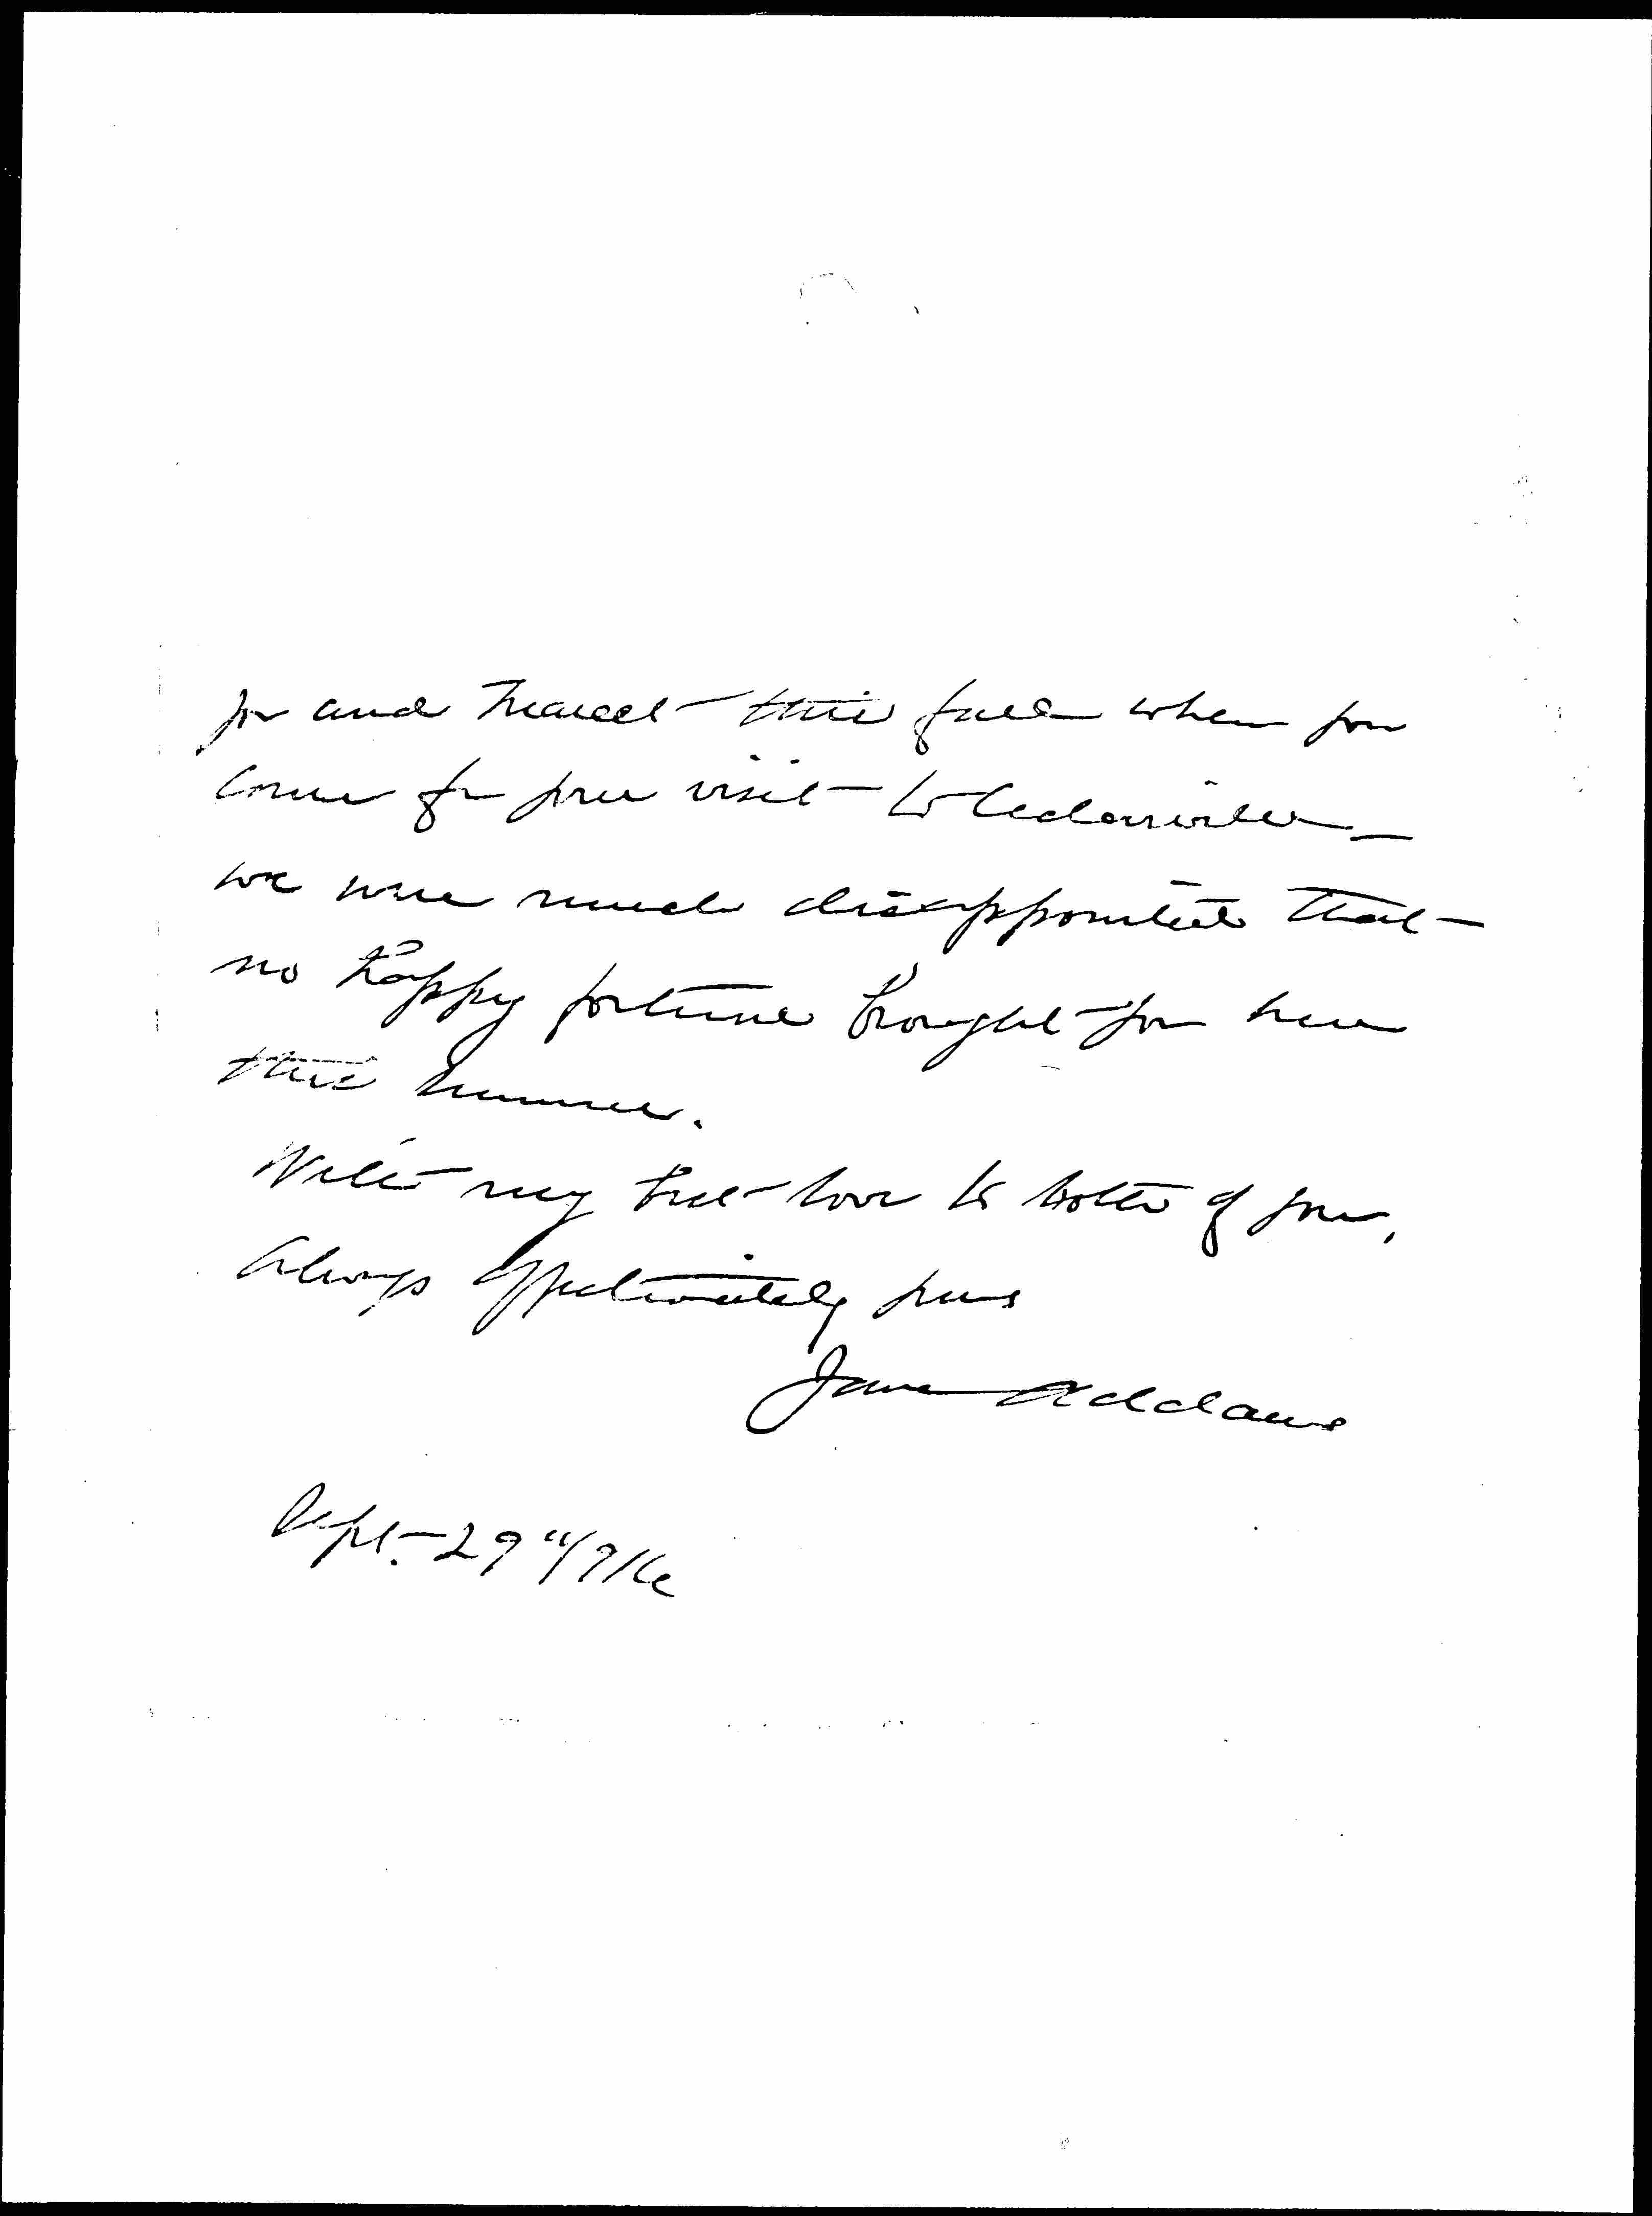 you and Marcet this fall when you
come for your visit to Cedarville –
we were much disappointed that
no happy fortune brought you here
this summer.
With my best love to both of you,
Always affectionately yours
Jane Addams
Sept. 29" 1916